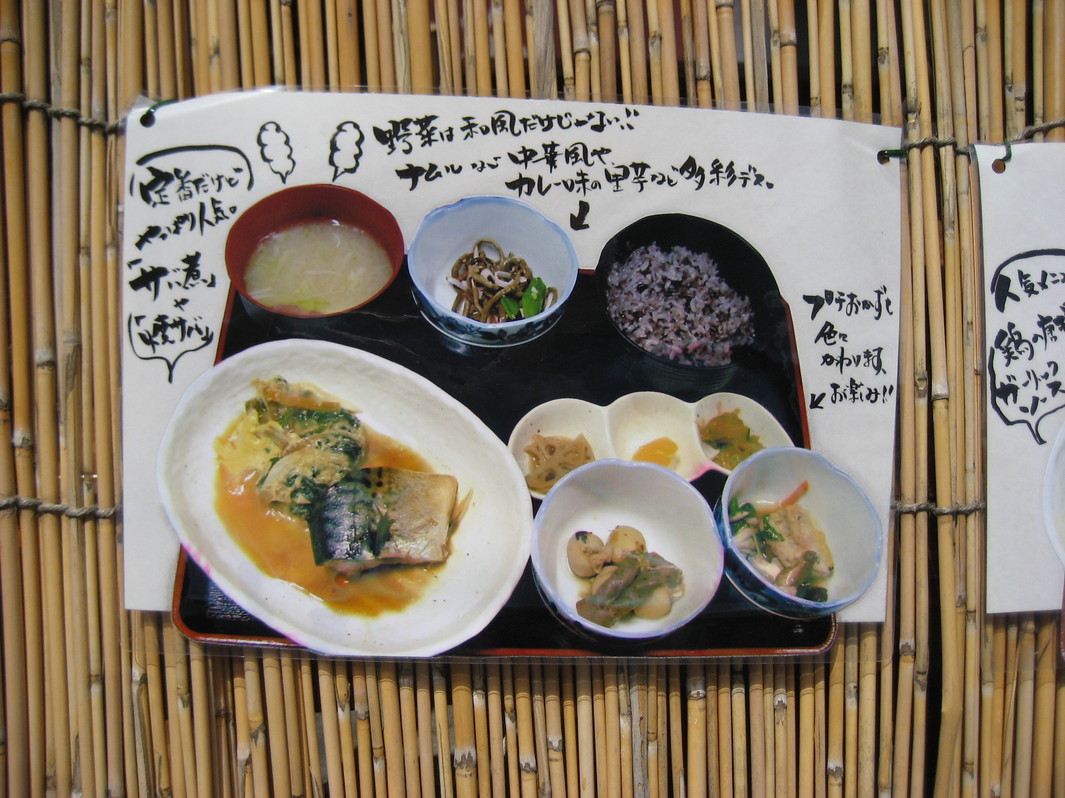 野菜は和風だけじゃない!!
ナムルなど中華風や
カレー味の里芋など多彩デス。
定番だけど
やっぱり人気。
「サバ煮」
や
「焼サバ」
プチおかずも
色々
かわります、
お楽しみ!!
人気メニュー
鶏の唐
ガーリック
ソース